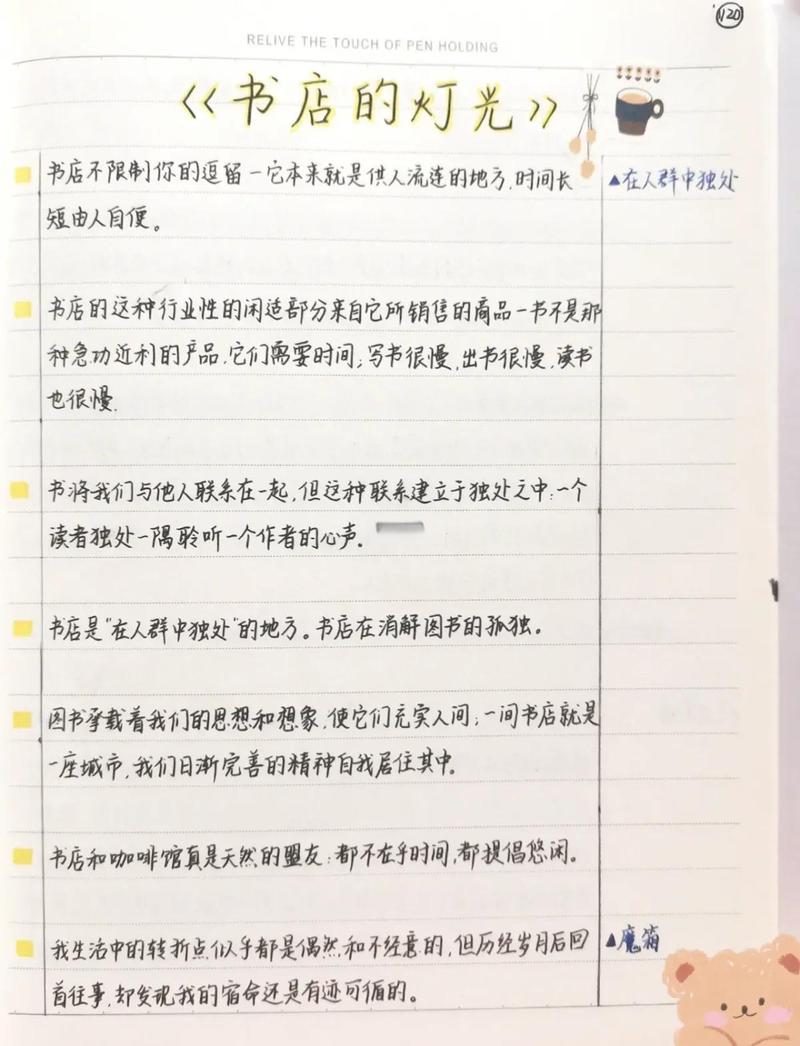 120
RELIVE THE TOUCH OF PEN HOLDING
《书店的灯光》
书店不限制你的逗留—它本来就是供人流连的地方,时间长
▲在人群中独处
短由人自便。
书店的这种行业性的闲适部分来自它所销售的商品—书不是那
种急功近利的产品,它们需要时间;写书很慢,出书很慢,读书
也很慢.
书将我们与他人联系在一起,但这种联系建立于独处之中:一个
读者独处一隅聆听一个作者的心声.
书店是"在人群中独处"的地方。书店在消解图书的孤独。
图书承载着我们的思想和想象,使它们充实人间;一间书店就是
一座城市,我们日渐完善的精神自我居住其中.
书店和咖啡馆真是天然的盟友:都不在乎时间,都提倡悠闲。
我生活中的转折点似乎都是偶然和不经意的,但历经岁月后回
▲魔箱
首往事,却发现我的宿命还是有迹可循的。